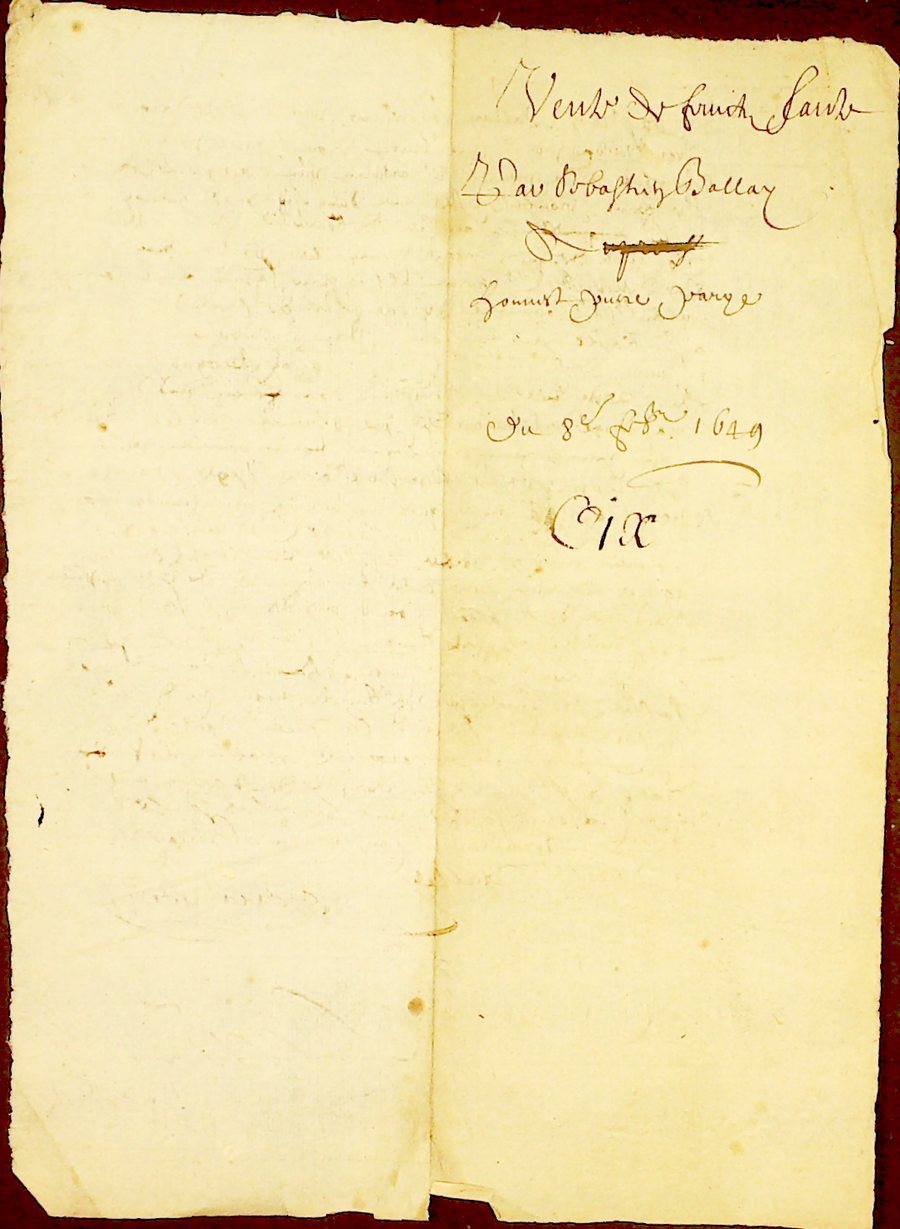 Vente de fruictz faicte
Par Sebastien Ballay
A
honnest pierre parye
Du 8e febr. 1649
Cix